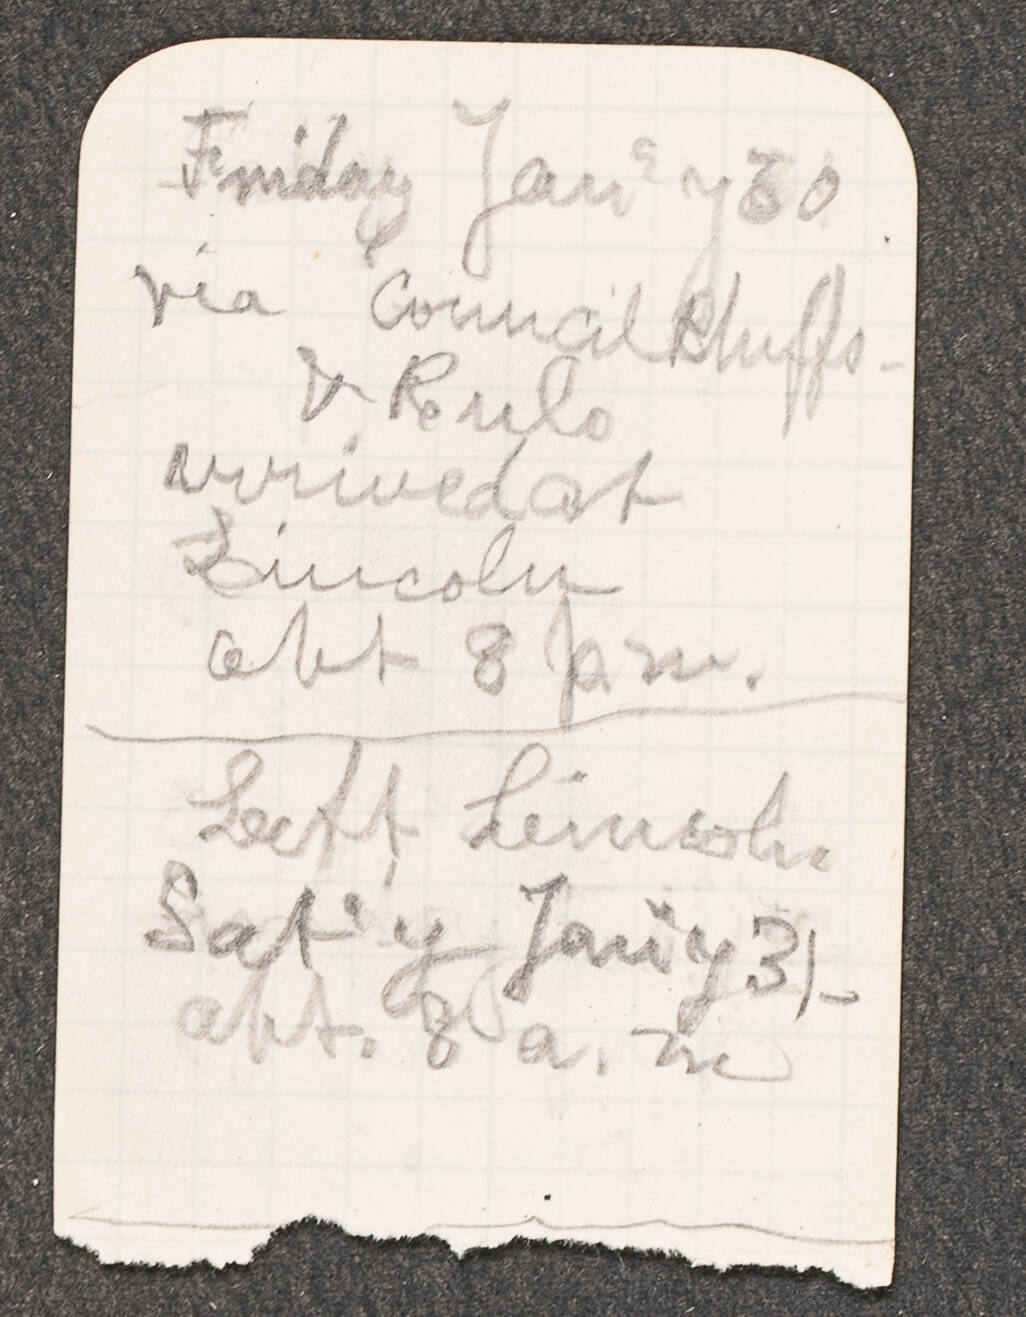 Friday Jan'y 30
via Council Bluffs-
& Rulo
arrived at
Lincoln
abt 8 p m.
Left Lincoln
Sat'y Jan'y 31-
abt. 8 a. m